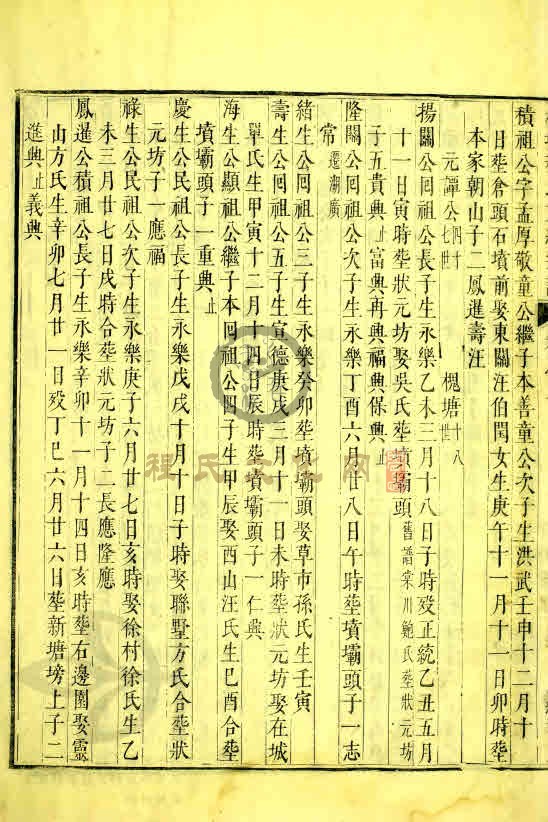 積祖公字孟厚敬童公繼子本善童公次子生洪武壬申十二月十
日塟倉頭石墳前娶東關汪伯閏女生庚午十一月十一日卯時塟
本家朝山子二鳳暹壽汪
元譚公四十七世 槐塘十八世
揚關公囘祖公長子生永樂乙未三月十八日子時殁正統乙丑五月
十一日寅時塟狀元坊娶吳氏塟墳壩頭舊譜棠川鮑氏塟狀元坊
子五貴興止富興再興福興保興止
隆關公囘祖公次子生永樂丁酉六月廿八日午時塟墳壩頭子一志
常遷湖廣
緒生公囘祖公三子生永樂癸卯塟墳壩頭娶草市孫氏生壬寅
壽生公囘祖公五子生宣德庚戌三月十一日未時塟狀元坊娶在城
單氏生甲寅十二月十四日辰時塟墳壩頭子一仁興
海生公顯祖公繼子本囘祖公四子生甲辰娶西山汪氏生己酉合塟
墳壩頭子一重興止
慶生公民祖公長子生永樂戊戌十月十日子時娶聯墅方氏合塟狀
元坊子一應福
祿生公民祖公次子生永樂庚子六月廿七日亥時娶徐村徐氏生乙
未三月廿七日戌時合塟狀元坊子二長應隆應
鳳暹公積祖公長子生永樂辛卯十一月十四日亥時塟右邊園娶靈
山方氏生辛卯七月廿一日殁丁巳六月廿六日塟新塘塝上子二
進興止義興
程氏文化网